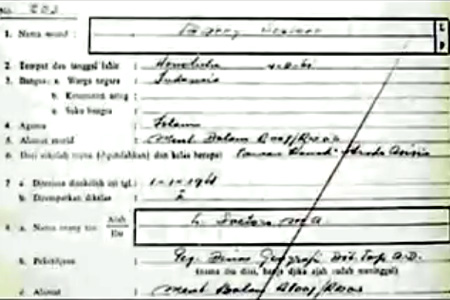 No. 203
1. Nama murid : Barry Soetoro L P
2. Tempat dan tanggal lahir : Honolulu 4-8-61
3. Bangsa: a. Warga negara : Indonesia
b. Keturunan asing :
c. Suku bangsa :
4. Agama : Islam
5. Alamat murid : Ment Dalam
6. Dari sekolah mana (dipindahkan) dan kelas berapa:
7. a. Diterima disekolah ini tgl.: 1-1-1968
b. Ditempatkan dikelas : I
8. a. Nama orang tua Ajah Ibu : L. Soetoro M.A.
b. Pekerdjaan : Peg. Dinas Geografi Dit. Top. A.D.
(nama ibu diisi, hanja djika ajah sudah meninggal)
c. Alamat : Ment Dalam